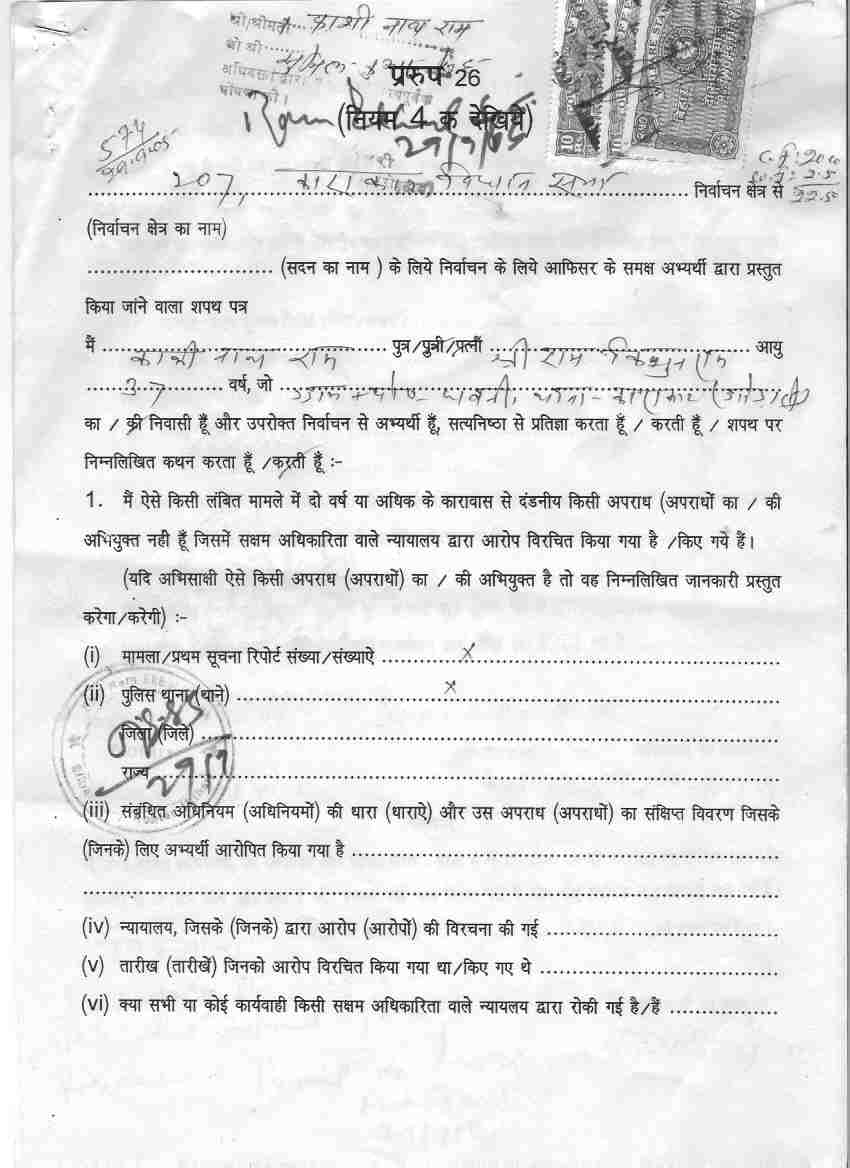 श्री/श्रीमती... काशी नाथ राम
श्री श्री
अधिवक्ता द्वारा
प्ररुप 26
(नियम 4 क देखिये)
29/9/05
574
207, काराकाट विधान सभा निर्वाचन क्षेत्र से
22.50
(निर्वाचन क्षेत्र का नाम)
(सदन का नाम ) के लिये निर्वाचन के लिये आफिसर के समक्ष अभ्यर्थी द्वारा प्रस्तुत
किया जाने वाला शपथ पत्र
मैं काशी नाथ राम पुत्र/पुत्री/पत्नीं श्री राम राम आयु
37 वर्ष, जो ग्राम + पो०- थाना- काराकाट
का / की निवासी हूँ और उपरोक्त निर्वाचन से अभ्यर्थी हूँ, सत्यनिष्ठा से प्रतिज्ञा करता हूँ / करती हूँ / शपथ पर
निम्नलिखित कथन करता हूँ /करती हूँ :-
1. मैं ऐसे किसी लंबित मामले में दो वर्ष या अधिक के कारावास से दंडनीय किसी अपराध (अपराधों का / की
अभियुक्त नही हूँ जिसमें सक्षम अधिकारिता वाले न्यायालय द्वारा आरोप विरचित किया गया है /किए गये हैं।
(यदि अभिसाक्षी ऐसे किसी अपराध (अपराधों) का / की अभियुक्त है तो वह निम्नलिखित जानकारी प्रस्तुत
करेगा/करेगी) :-
(i) मामला/प्रथम सूचना रिपोर्ट संख्या/संख्याऐ x
(ii) पुलिस थाना (थाने) x
जिला (जिले)
राज्य
29/9
(iii) संबंधित अधिनियम (अधिनियमों) की धारा (धाराऐ) और उस अपराध (अपराधों) का संक्षिप्त विवरण जिसके
(जिनके) लिए अभ्यर्थी आरोपित किया गया है
(iv) न्यायालय, जिसके (जिनके) द्वारा आरोप (आरोपों) की विरचना की गई
(v) तारीख (तारीखें) जिनको आरोप विरचित किया गया था/किए गए थे
(vi) क्या सभी या कोई कार्यवाही किसी सक्षम अधिकारिता वाले न्यायलय द्वारा रोकी गई है/हैं